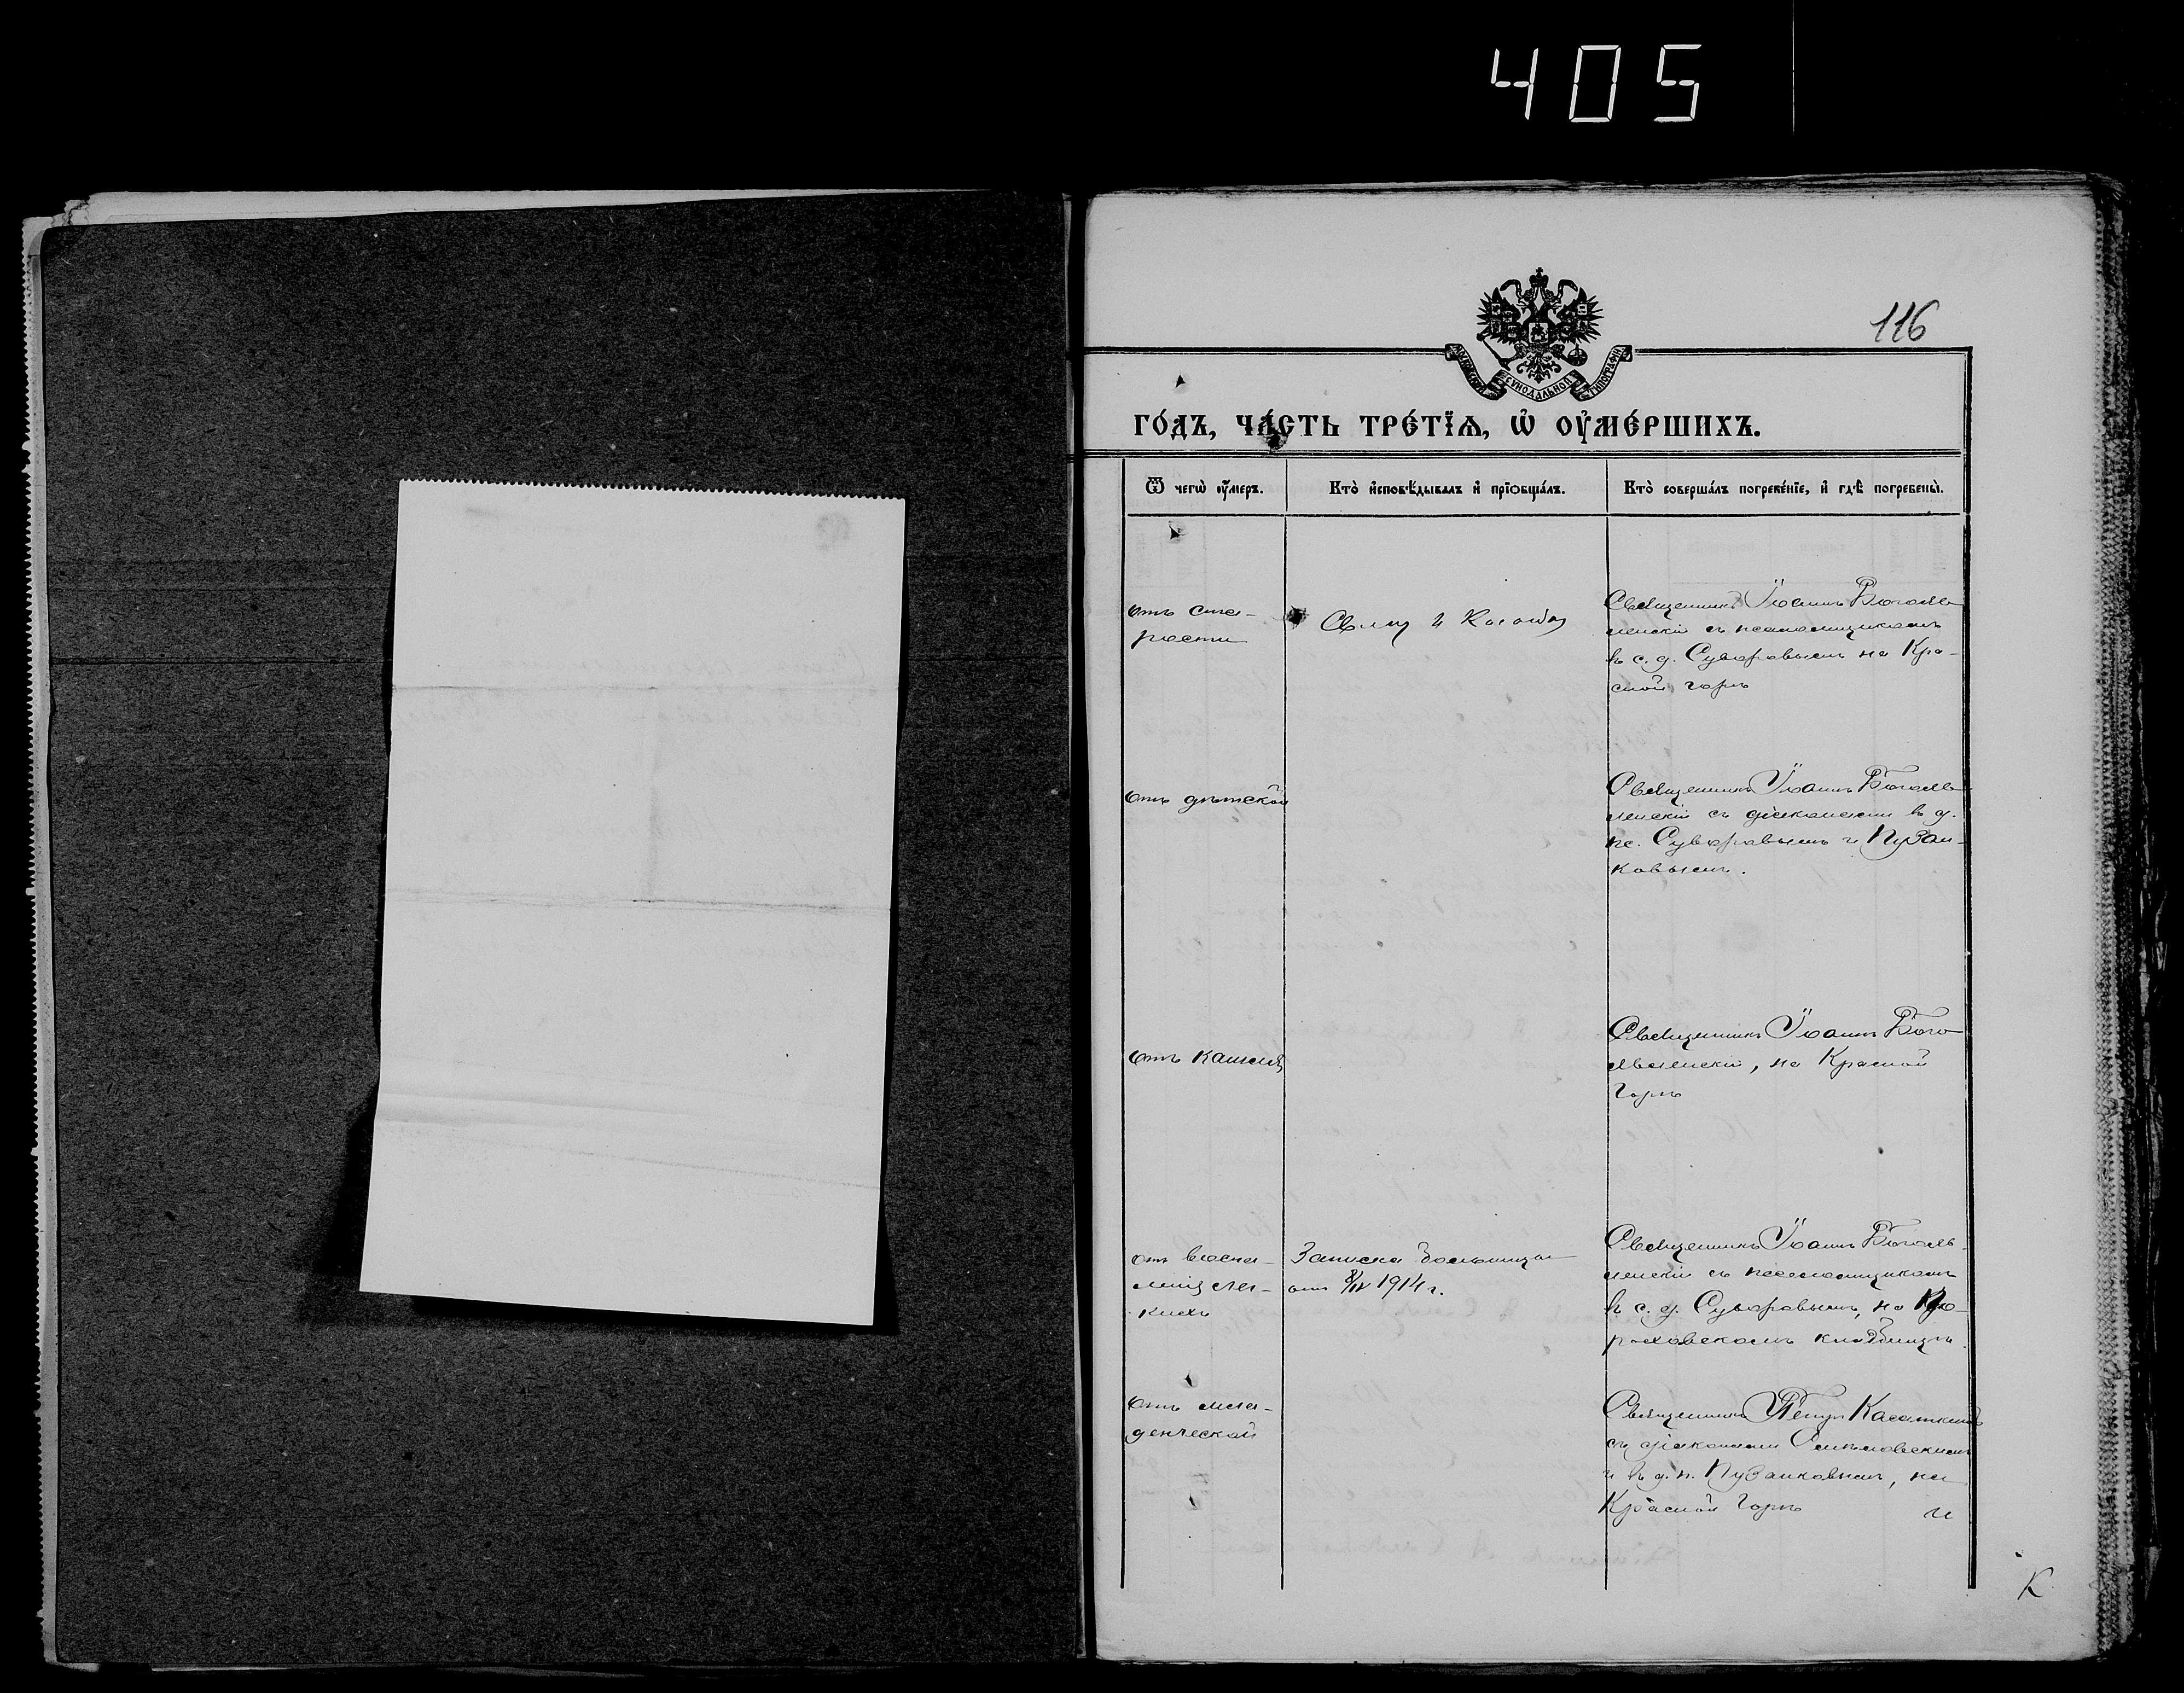 405
116
МОСКОВСКОЙ СΥНОДАЛЬНОЙ ТИПОГРАФІИ
ГО́ДЪ, ЧА́СТЬ ТРЕ́ТЇѦ, Ѡ҆ ОУ҆МЕ́РШИХЪ.
Ѿ чегѡ̀ оу҆́меръ.
Кто̀ и҆сповѣ́дывалъ и҆ прїобща́лъ.
Кто̀ соверша́лъ погребе́нїе, и҆ гдѣ̀ погребены̀.
отъ ста-
рости
Священникъ Іоаннъ Богояв-
ленскій съ псаломщикомъ
в с. д. Суворовымъ на Кра-
сной горѣ
отъ дѣтской
Священникъ Іоаннъ Богояв-
ленскій съ діакономъ в д.
пс. Суворовымъ и Пузан-
ковымъ.
отъ кашля
Священникъ Іоаннъ Бого
явленскій, на Красной
Горѣ
отъ воспа-
ленія лег-
кихъ
Записка больницы
отъ 8/IV 1914 г.
Священникъ Іоаннъ Богояв-
ленскій съ псаломщикомъ
в с. д. Суворовымъ, на
кладбищѣ.
отъ мла-
денческой
Священникъ Петръ Касаткинъ
съ діакономъ
и в д. п. Пузанковымъ, на
Красной Горѣ
и
К